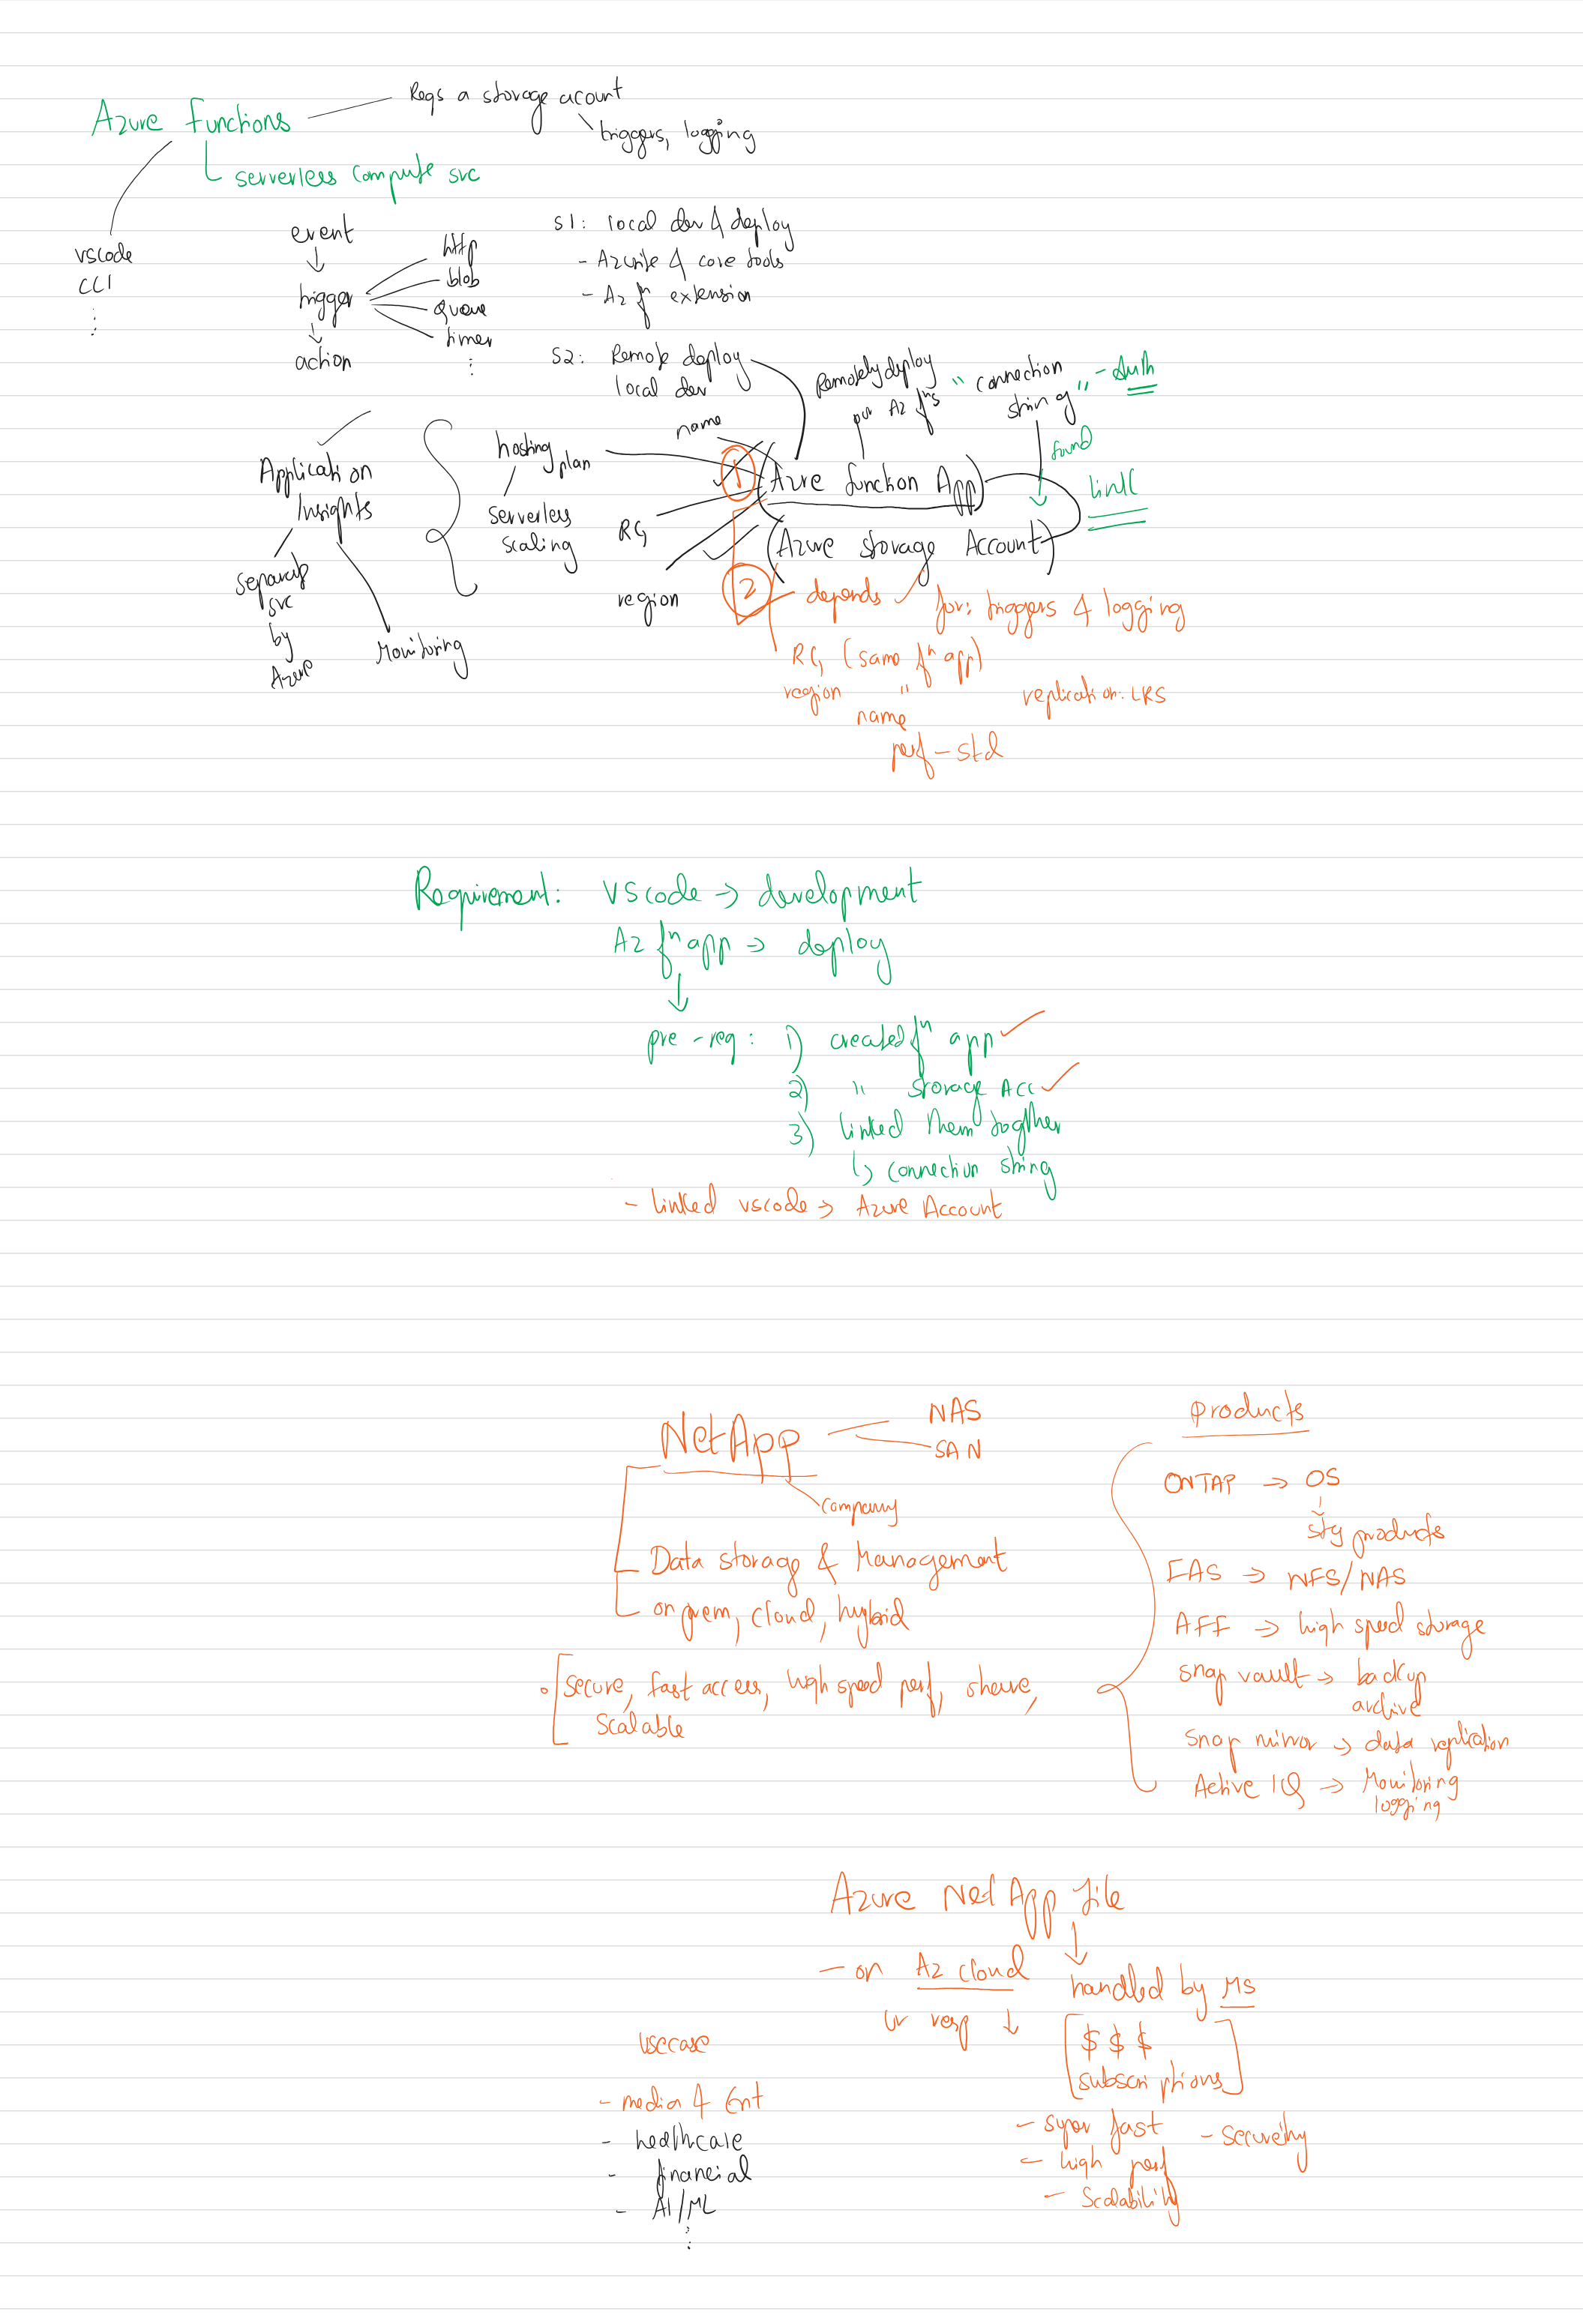 Azure Functions
Reqs a storage acount
triggers, logging
serverless compute svc
vscode
CLI
event
trigger
action
http
blob
queue
timer
S1: local dev & deploy
- Azurite & core tools
- Az fn extension
S2: Remote deploy
local dev
Remotely deploy
Az fns
"connection
string" - Auth
found
link
name
hosting
plan
serverless
scaling
RG
region
Application
Insights
separate
svc
by
Azure
Monitoring
1
Azure function App
Azure storage Account
2
depends
for: triggers & logging
RG (same fn app)
region "
name
perf - std
replication: LRS
Requirement: vscode → development
Az fn app → deploy
pre-req: 1) created fn app
2) " storage Acc
3) linked them togther
↳ connection string
- linked vscode → Azure Account
NetApp
NAS
SAN
company
Data storage & Management
on prem, cloud, hybrid
secure, fast access, high speed perf, share,
scalable
products
ONTAP → OS
stg products
FAS → NFS/NAS
AFF → high speed storage
snap vault → backup
archive
snap mirror → data replication
Active IQ → Monitoring
logging
Azure NetApp file
- on Az cloud
ur resp ↓
handled by MS
$ $ $
subscriptions
- super fast
- high perf
- scalability
- security
usecase
- media & Ent
- healthcare
- financial
- AI/ML